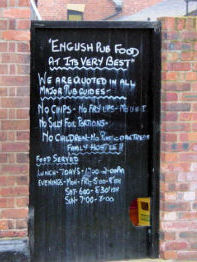 "English Pub Food
At Its Very Best"
We are quoted in all
Major Pub Guides-
No Chips - No Fry Ups - No
No Silly For Portions-
No Children - No
Family Hostile!!
Food Served
Lunch - 7 Days -
Evenings - Mon - Fri - 5:00 - 8
Sat - 6:00 - 8:30
Sun - 7:00 -